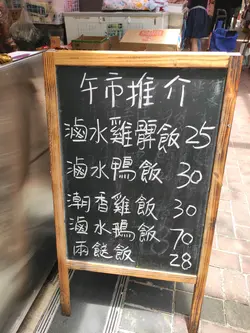 午市推介
滷水雞髀飯 25
滷水鴨飯 30
潮香雞飯 30
滷水鵝飯 70
兩餸飯 28